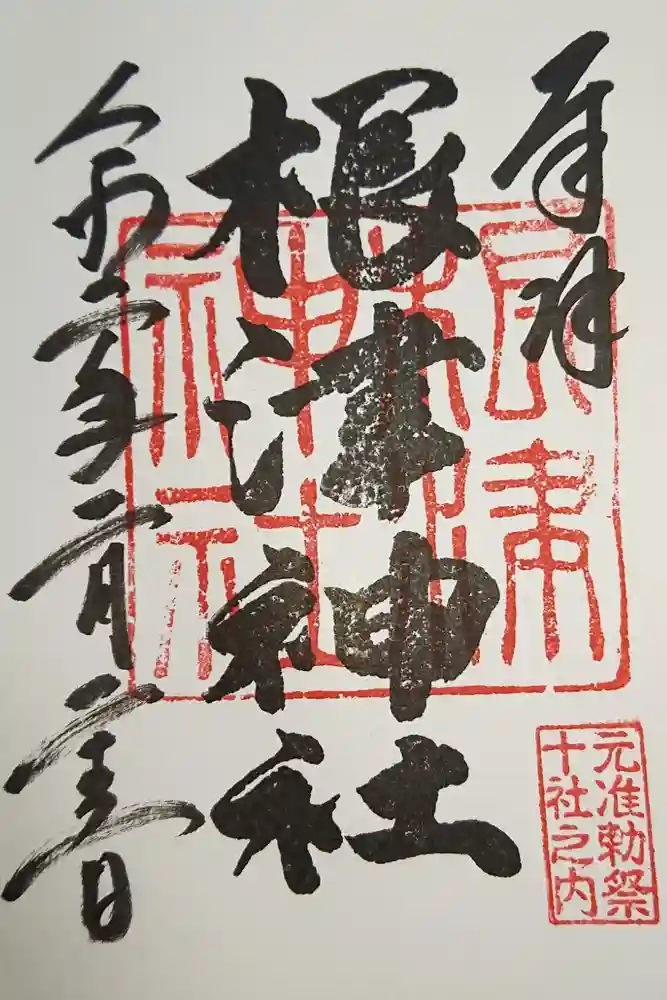 奉拝
根津神社
令和二年二月二十三日
根津
神社
元准勅祭
十社之内